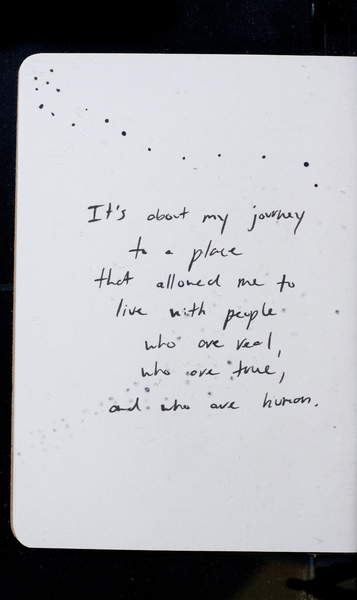 It's about my journey
to a place
that allowed me to
live with people
who are real,
who are true,
and who are human.